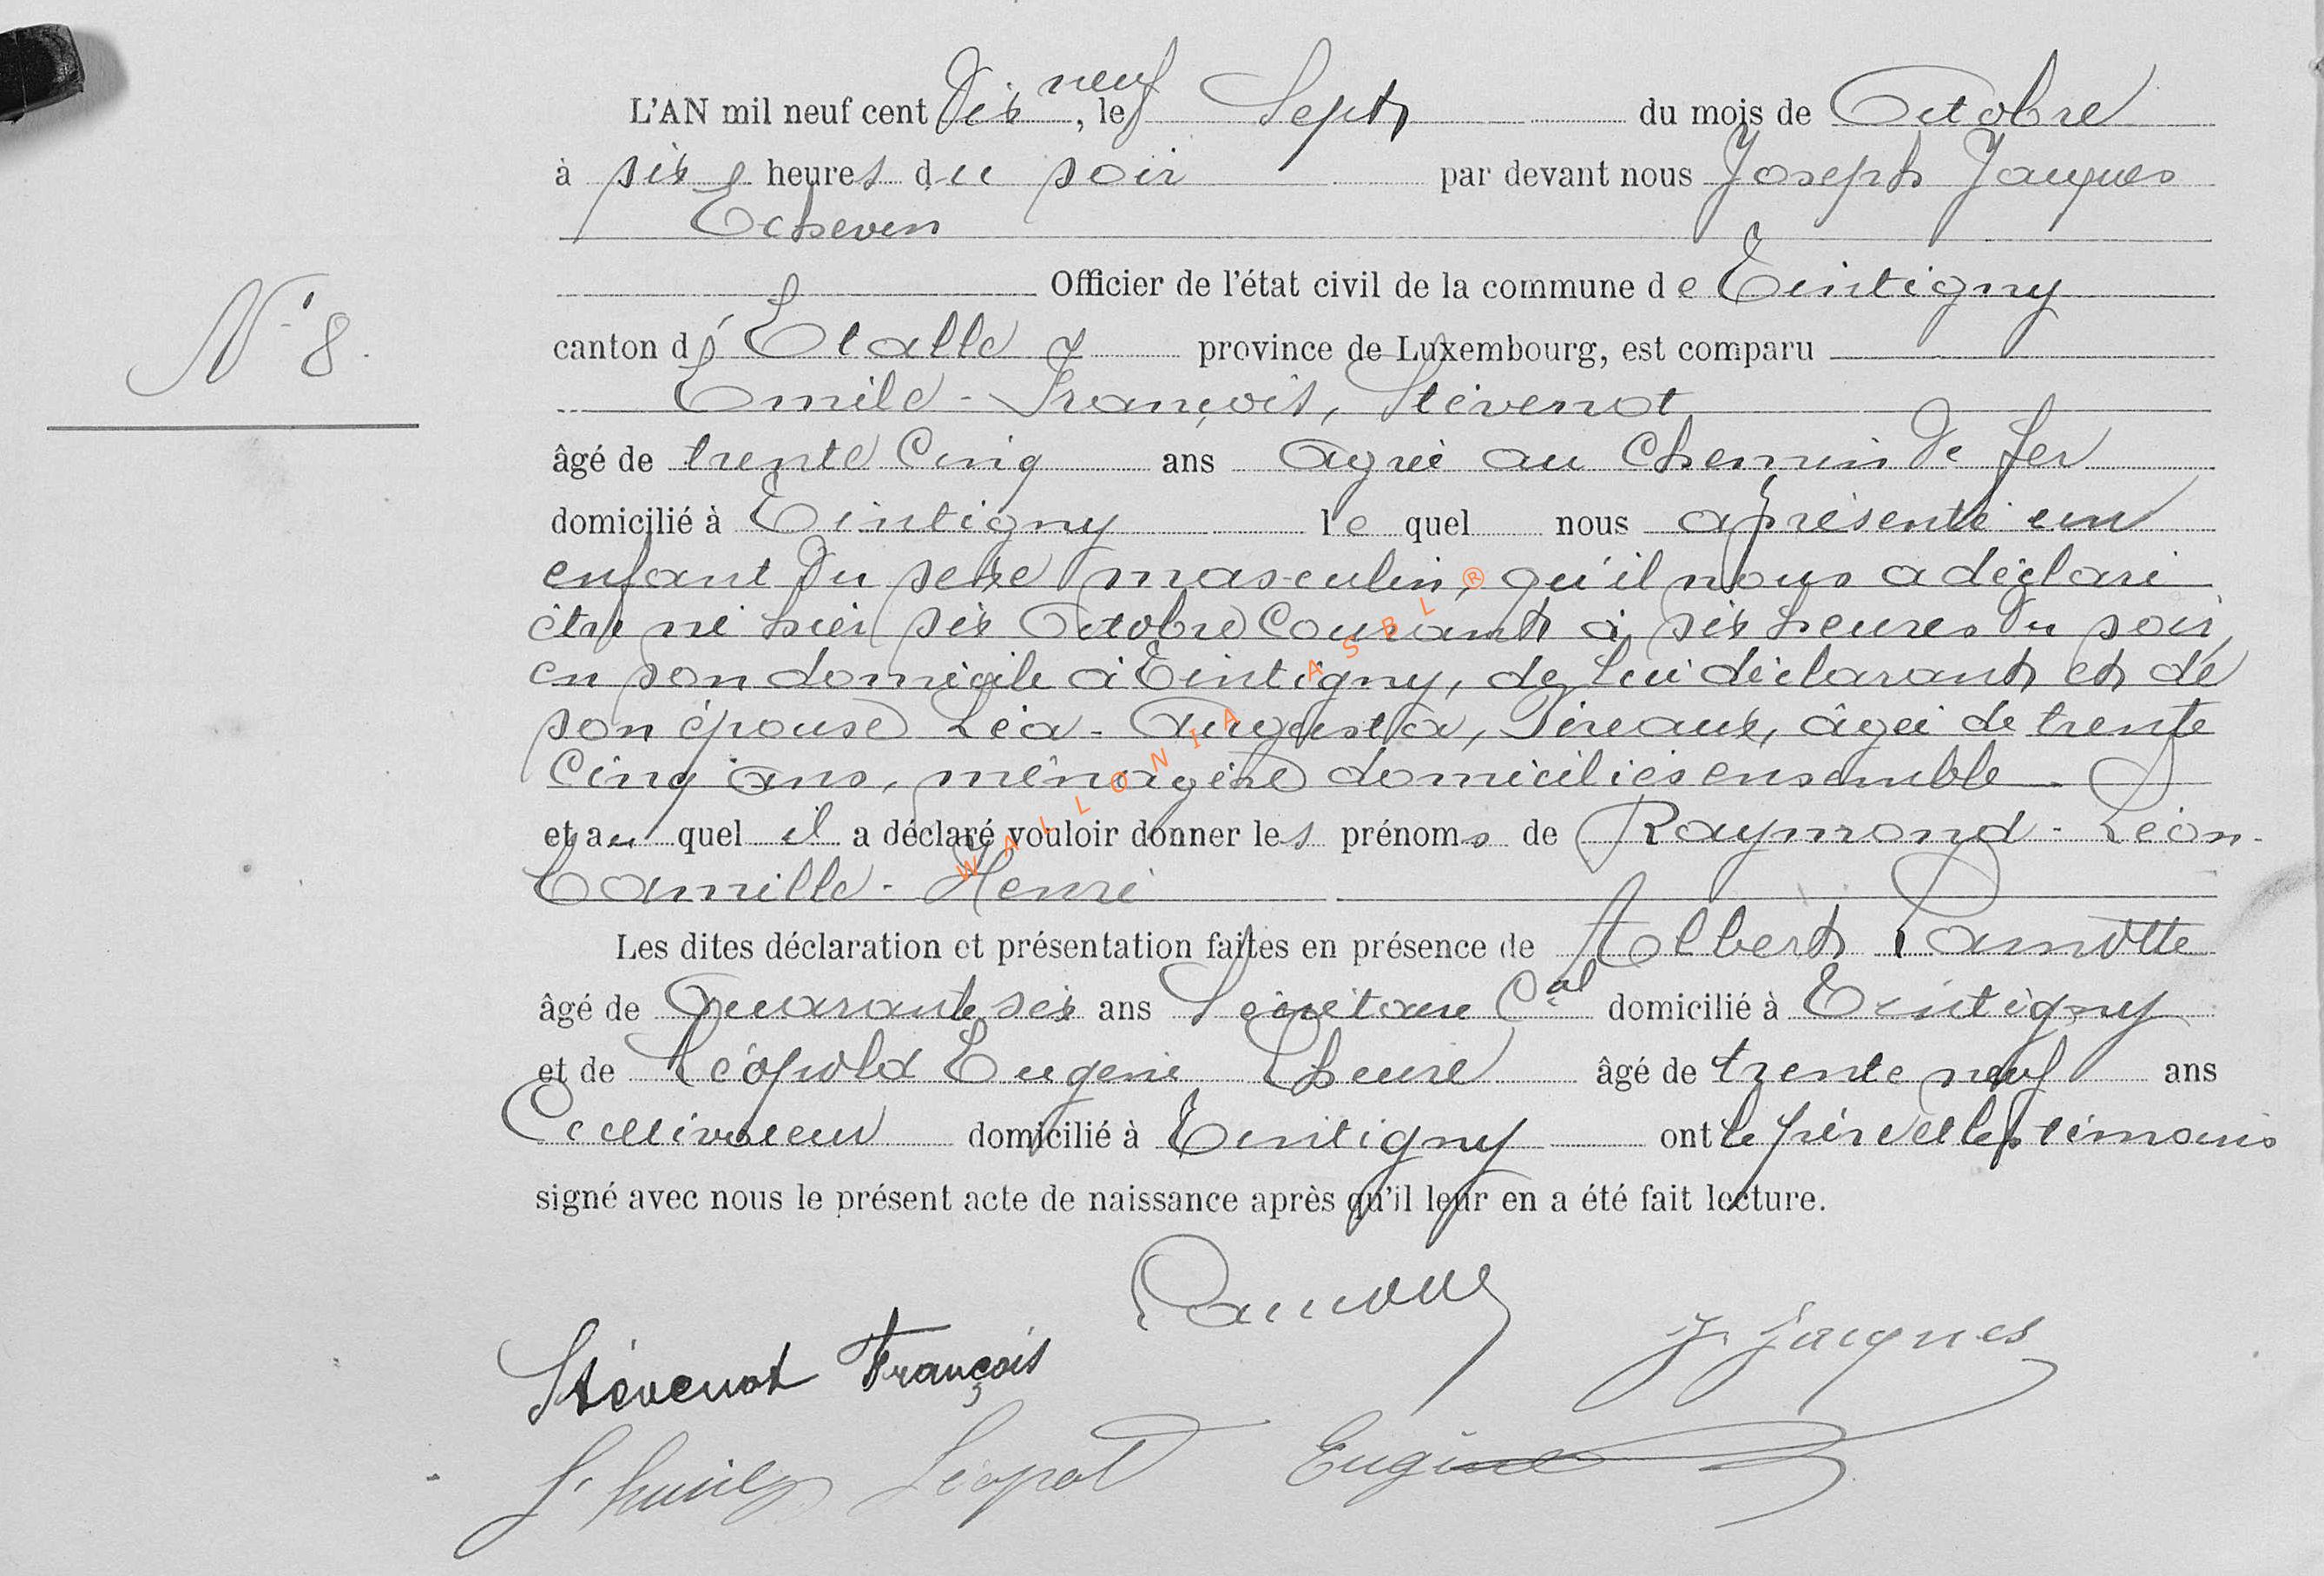 L'AN mil neuf cent Dix neuf, le Sept du mois de Octobre
à six heures du soir par devant nous Joseph Jacques
Echevin
Officier de l'état civil de la commune de Tintigny
N° 8.
canton d'Etalle province de Luxembourg, est comparu
Emile-François, Stévenot
âgé de trente Cinq ans agréé au Chemin de fer
domicilié à Tintigny lequel nous a présenté un
enfant du sexe masculin, qu'il nous a déclaré
être né hier six Octobre Courant à six heures du soir,
en son domicile à Tintigny, de lui déclarant et de
son épouse Léa-Augusta, Pireaux, âgée de trente
Cinq ans, ménagère domiciliés ensemble
et auquel il a déclaré vouloir donner les prénoms de Raymond-Léon-
Camille-Henri
Les dites déclaration et présentation faites en présence de Albert Lamotte
âgé de Quarante six ans Secrétaire Cal domicilié à Tintigny
et de Léopold Eugène Lhuire âgé de trente neuf ans
Cultivateur domicilié à Tintigny ont le père et les témoins
signé avec nous le présent acte de naissance après qu'il leur en a été fait lecture.
Lamotte
Stévenot François
J. Jacques
Léopol Eugène
WALLONIA ASBL ®